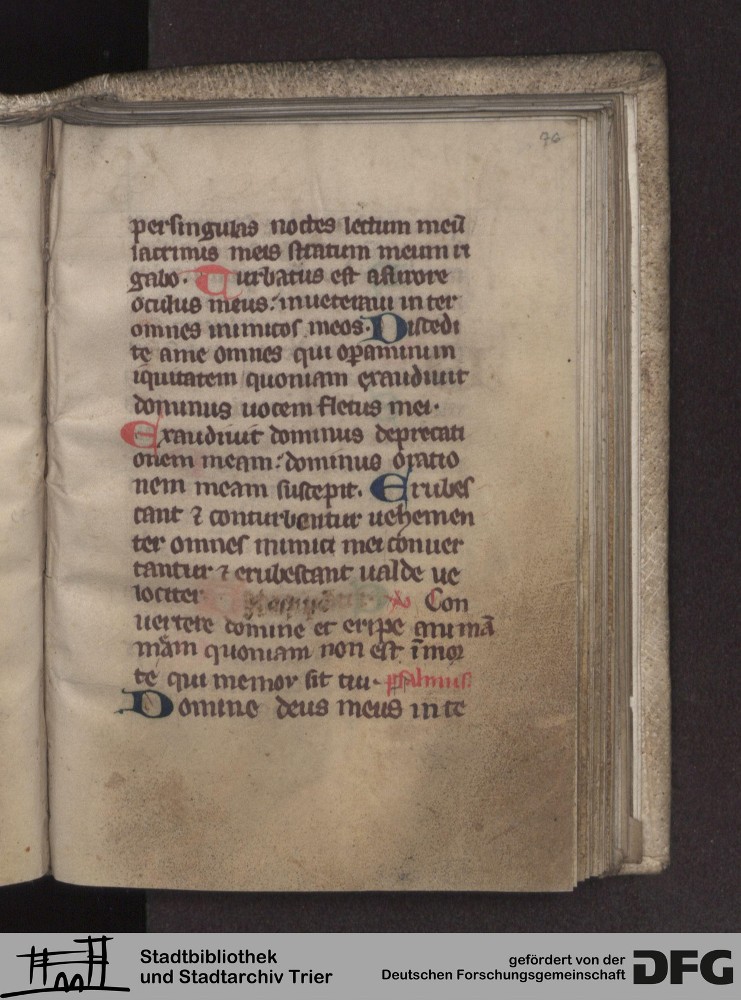 76
persingulas noctes lectum meū
lacrimis meis stratum meum ri
gabo. Turbatus est afurore
oculus meus: inueteraui inter
omnes inimicos meos. Discedi
te ame omnes qui operamini
iquitatem quoniam exaudiuit
dominus uocem fletus mei.
Exaudiuit dominus deprecati
onem meam: dominus oratio
nem meam suscepit. Erubes
cant ⁊ conturbentur uehemen
ter omnes inimici mei conuer
tantur ⁊ erubescant ualde ue
lociter Con
uertere domine et eripe animā
mām quoniam non est ī mor
te qui memor sit tui. psalmus
Domine deus meus in te
Stadtbibliothek
und Stadtarchiv Trier
gefördert von der
Deutschen Forschungsgemeinschaft
DFG